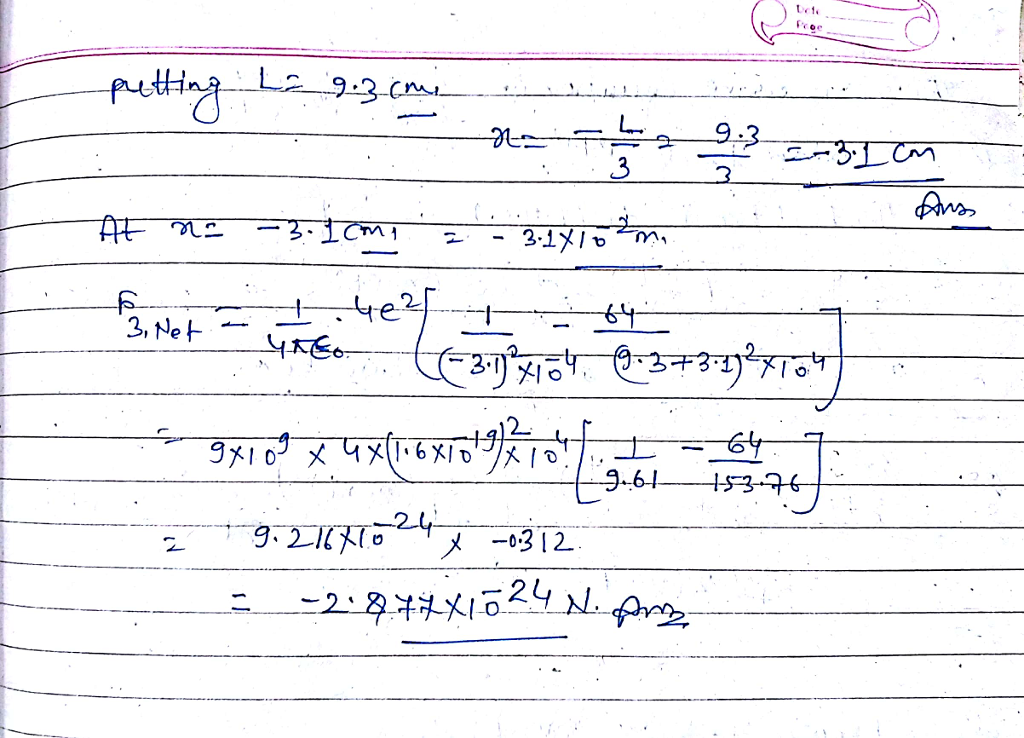 Date
Page
putting L = 9.3 cm.
x = -L/3 = 9.3/3 = -3.1 cm
Ans
At x = -3.1 cm, = -3.1×10⁻² m.
F₃,Net = 1/4πε₀ . 4e² [1/(-3.1)²×10⁻⁴ - 64/(9.3+3.1)²×10⁻⁴]
= 9×10⁹ × 4×(1.6×10⁻¹⁹)² × 10⁴ [1/9.61 - 64/153.76]
= 9.216×10⁻²⁴ × -0.312
= -2.877×10⁻²⁴ N. Ans